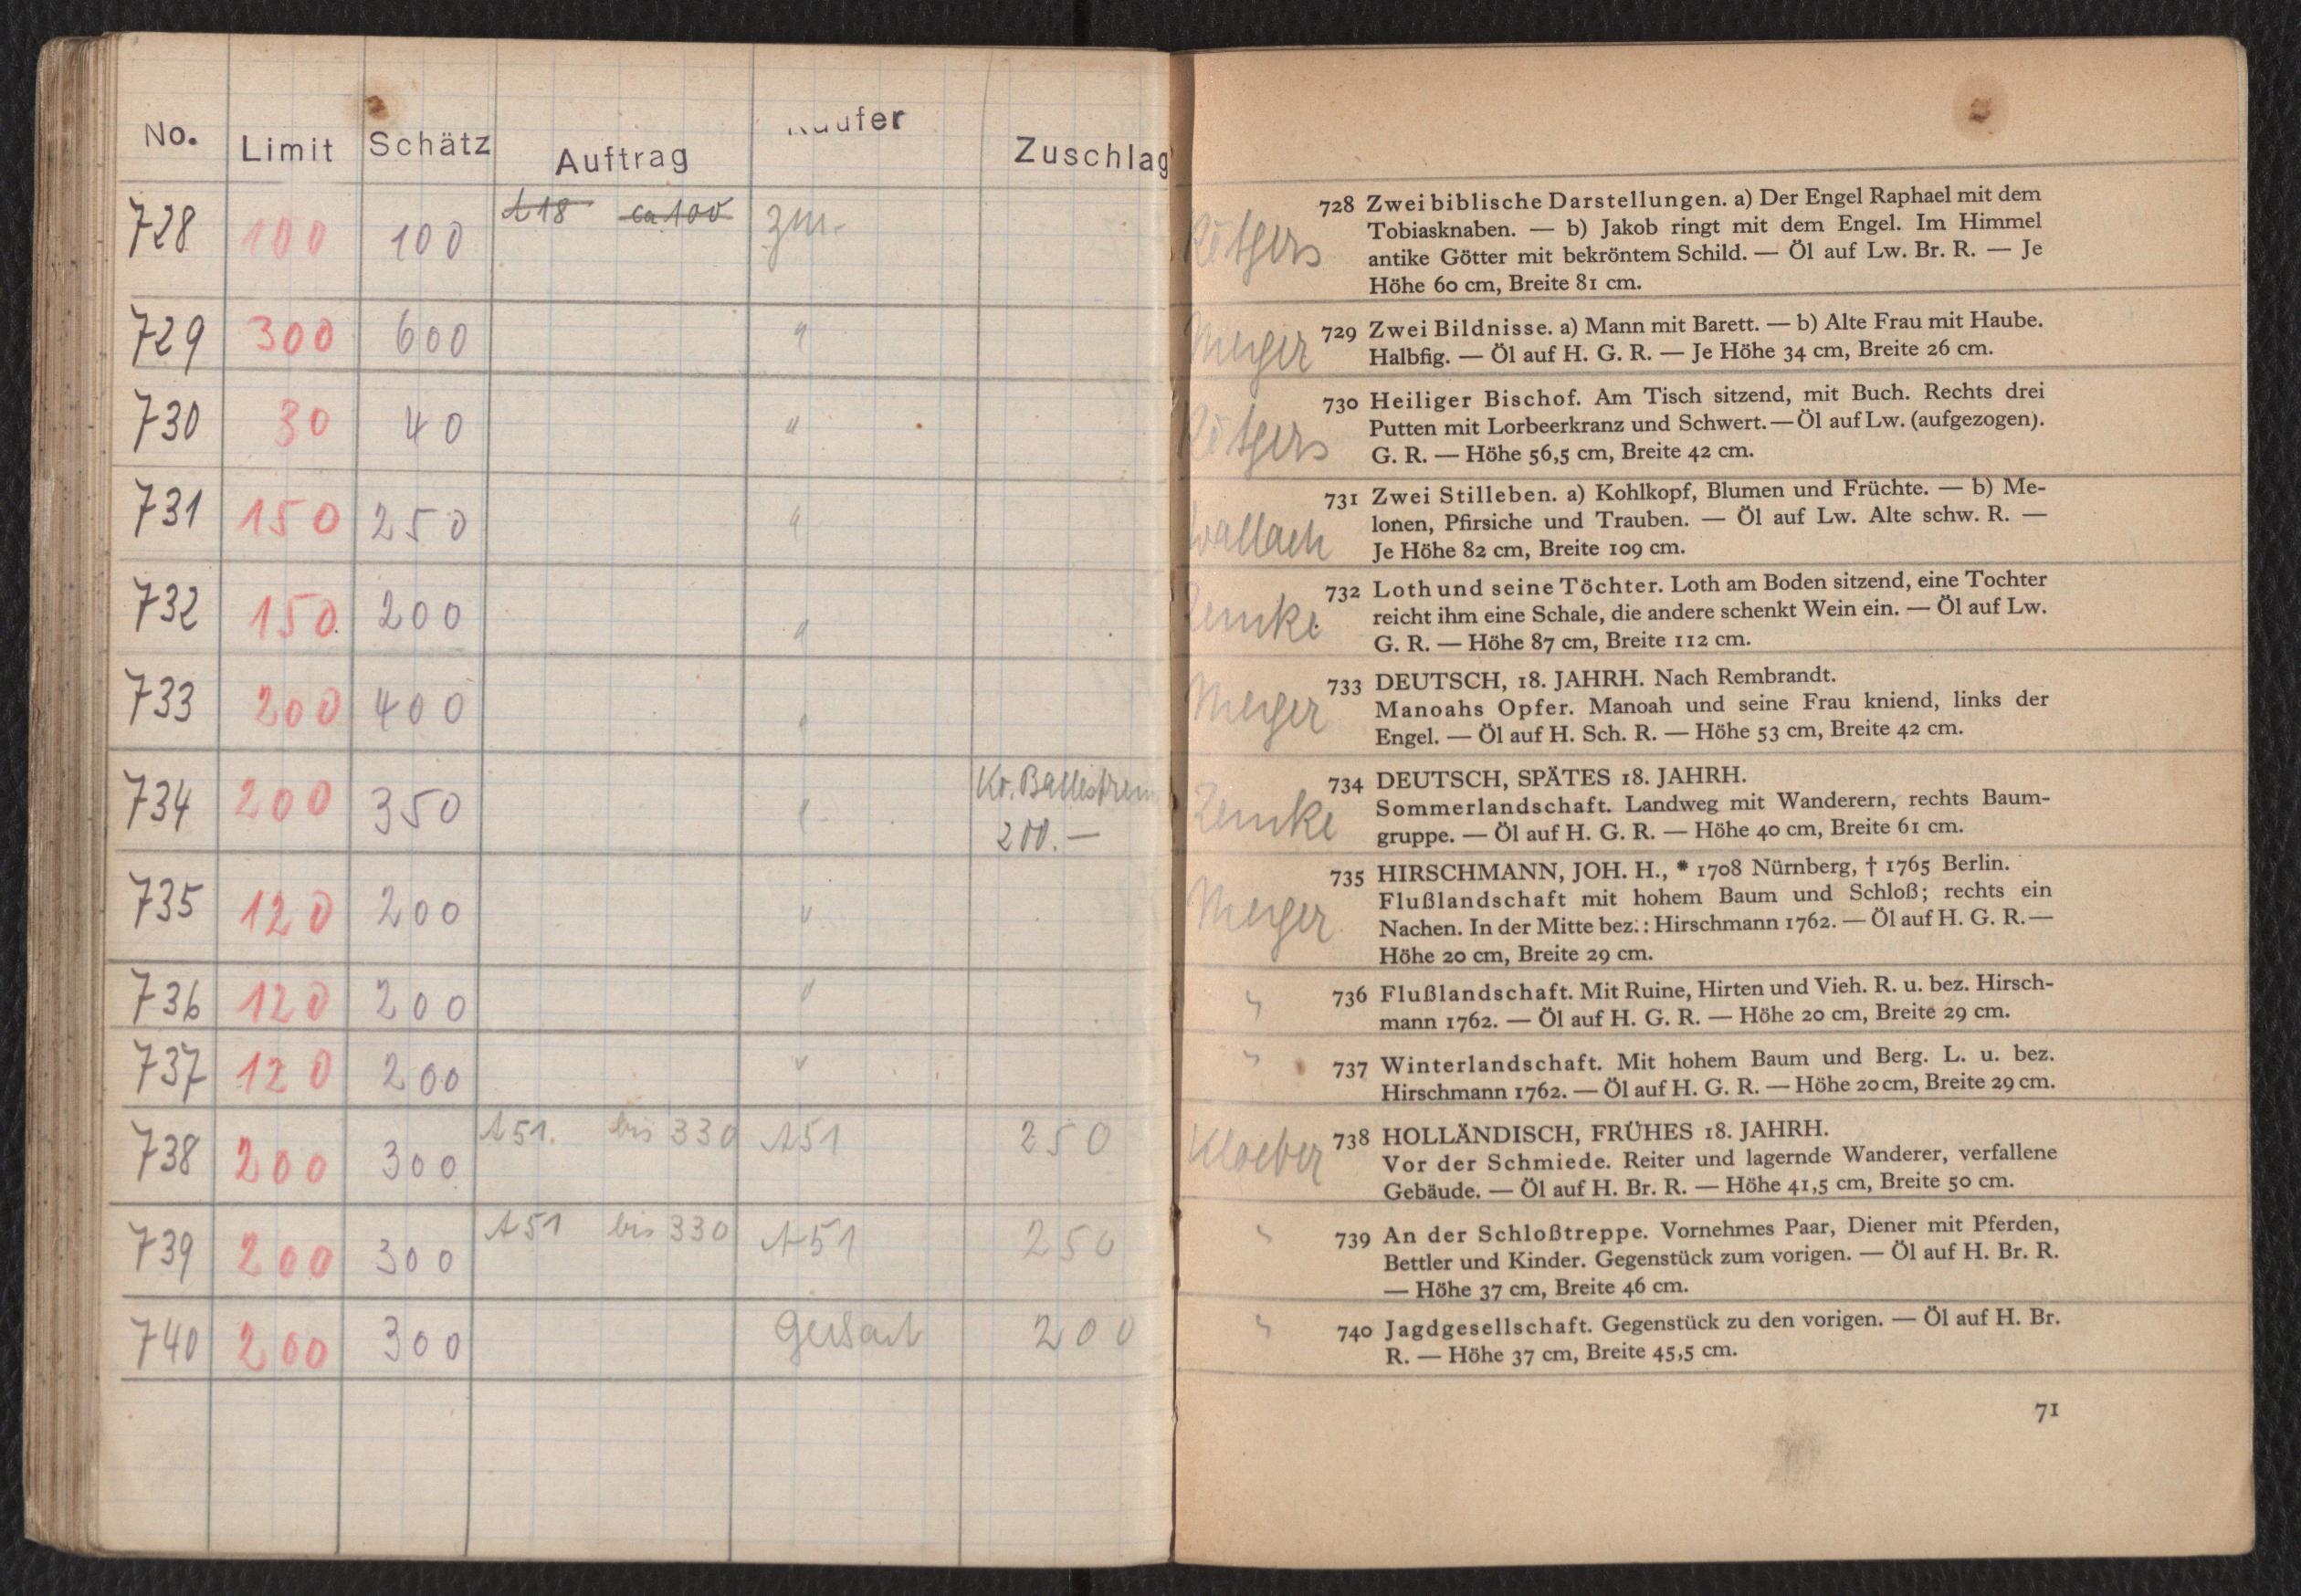 No. Limit Schätz Auftrag Käufer Zuschlag
728 100 100 A 18 ca 100 zur.
729 300 600 "
730 30 40 "
731 150 250 "
732 150. 200 "
733 200 400 "
734 200 350 " Kv. Ballestrem 200.—
735 120 200 "
736 120 200 "
737 120 200 "
738 200 300 A 51. bis 330 A 51 250
739 200 300 A 51 bis 330 A 51 250
740 200 300 200
Rötgers
728 Zwei biblische Darstellungen. a) Der Engel Raphael mit dem
Tobiasknaben. — b) Jakob ringt mit dem Engel. Im Himmel
antike Götter mit bekröntem Schild. — Öl auf Lw. Br. R. — Je
Höhe 60 cm, Breite 81 cm.
Meyer
729 Zwei Bildnisse. a) Mann mit Barett. — b) Alte Frau mit Haube.
Halbfig. — Öl auf H. G. R. — Je Höhe 34 cm, Breite 26 cm.
Rötgers
730 Heiliger Bischof. Am Tisch sitzend, mit Buch. Rechts drei
Putten mit Lorbeerkranz und Schwert. — Öl auf Lw. (aufgezogen).
G. R. — Höhe 56,5 cm, Breite 42 cm.
Wallach
731 Zwei Stilleben. a) Kohlkopf, Blumen und Früchte. — b) Me-
lonen, Pfirsiche und Trauben. — Öl auf Lw. Alte schw. R. —
Je Höhe 82 cm, Breite 109 cm.
Lemke
732 Loth und seine Töchter. Loth am Boden sitzend, eine Tochter
reicht ihm eine Schale, die andere schenkt Wein ein. — Öl auf Lw.
G. R. — Höhe 87 cm, Breite 112 cm.
Meyer
733 DEUTSCH, 18. JAHRH. Nach Rembrandt.
Manoahs Opfer. Manoah und seine Frau kniend, links der
Engel. — Öl auf H. Sch. R. — Höhe 53 cm, Breite 42 cm.
Lemke
734 DEUTSCH, SPÄTES 18. JAHRH.
Sommerlandschaft. Landweg mit Wanderern, rechts Baum-
gruppe. — Öl auf H. G. R. — Höhe 40 cm, Breite 61 cm.
Meyer
735 HIRSCHMANN, JOH. H., * 1708 Nürnberg, † 1765 Berlin.
Flußlandschaft mit hohem Baum und Schloß; rechts ein
Nachen. In der Mitte bez.: Hirschmann 1762. — Öl auf H. G. R. —
Höhe 20 cm, Breite 29 cm.
"
736 Flußlandschaft. Mit Ruine, Hirten und Vieh. R. u. bez. Hirsch-
mann 1762. — Öl auf H. G. R. — Höhe 20 cm, Breite 29 cm.
"
737 Winterlandschaft. Mit hohem Baum und Berg. L. u. bez.
Hirschmann 1762. — Öl auf H. G. R. — Höhe 20 cm, Breite 29 cm.
Kloeber
738 HOLLÄNDISCH, FRÜHES 18. JAHRH.
Vor der Schmiede. Reiter und lagernde Wanderer, verfallene
Gebäude. — Öl auf H. Br. R. — Höhe 41,5 cm, Breite 50 cm.
"
739 An der Schloßtreppe. Vornehmes Paar, Diener mit Pferden,
Bettler und Kinder. Gegenstück zum vorigen. — Öl auf H. Br. R.
— Höhe 37 cm, Breite 46 cm.
"
740 Jagdgesellschaft. Gegenstück zu den vorigen. — Öl auf H. Br.
R. — Höhe 37 cm, Breite 45,5 cm.
71